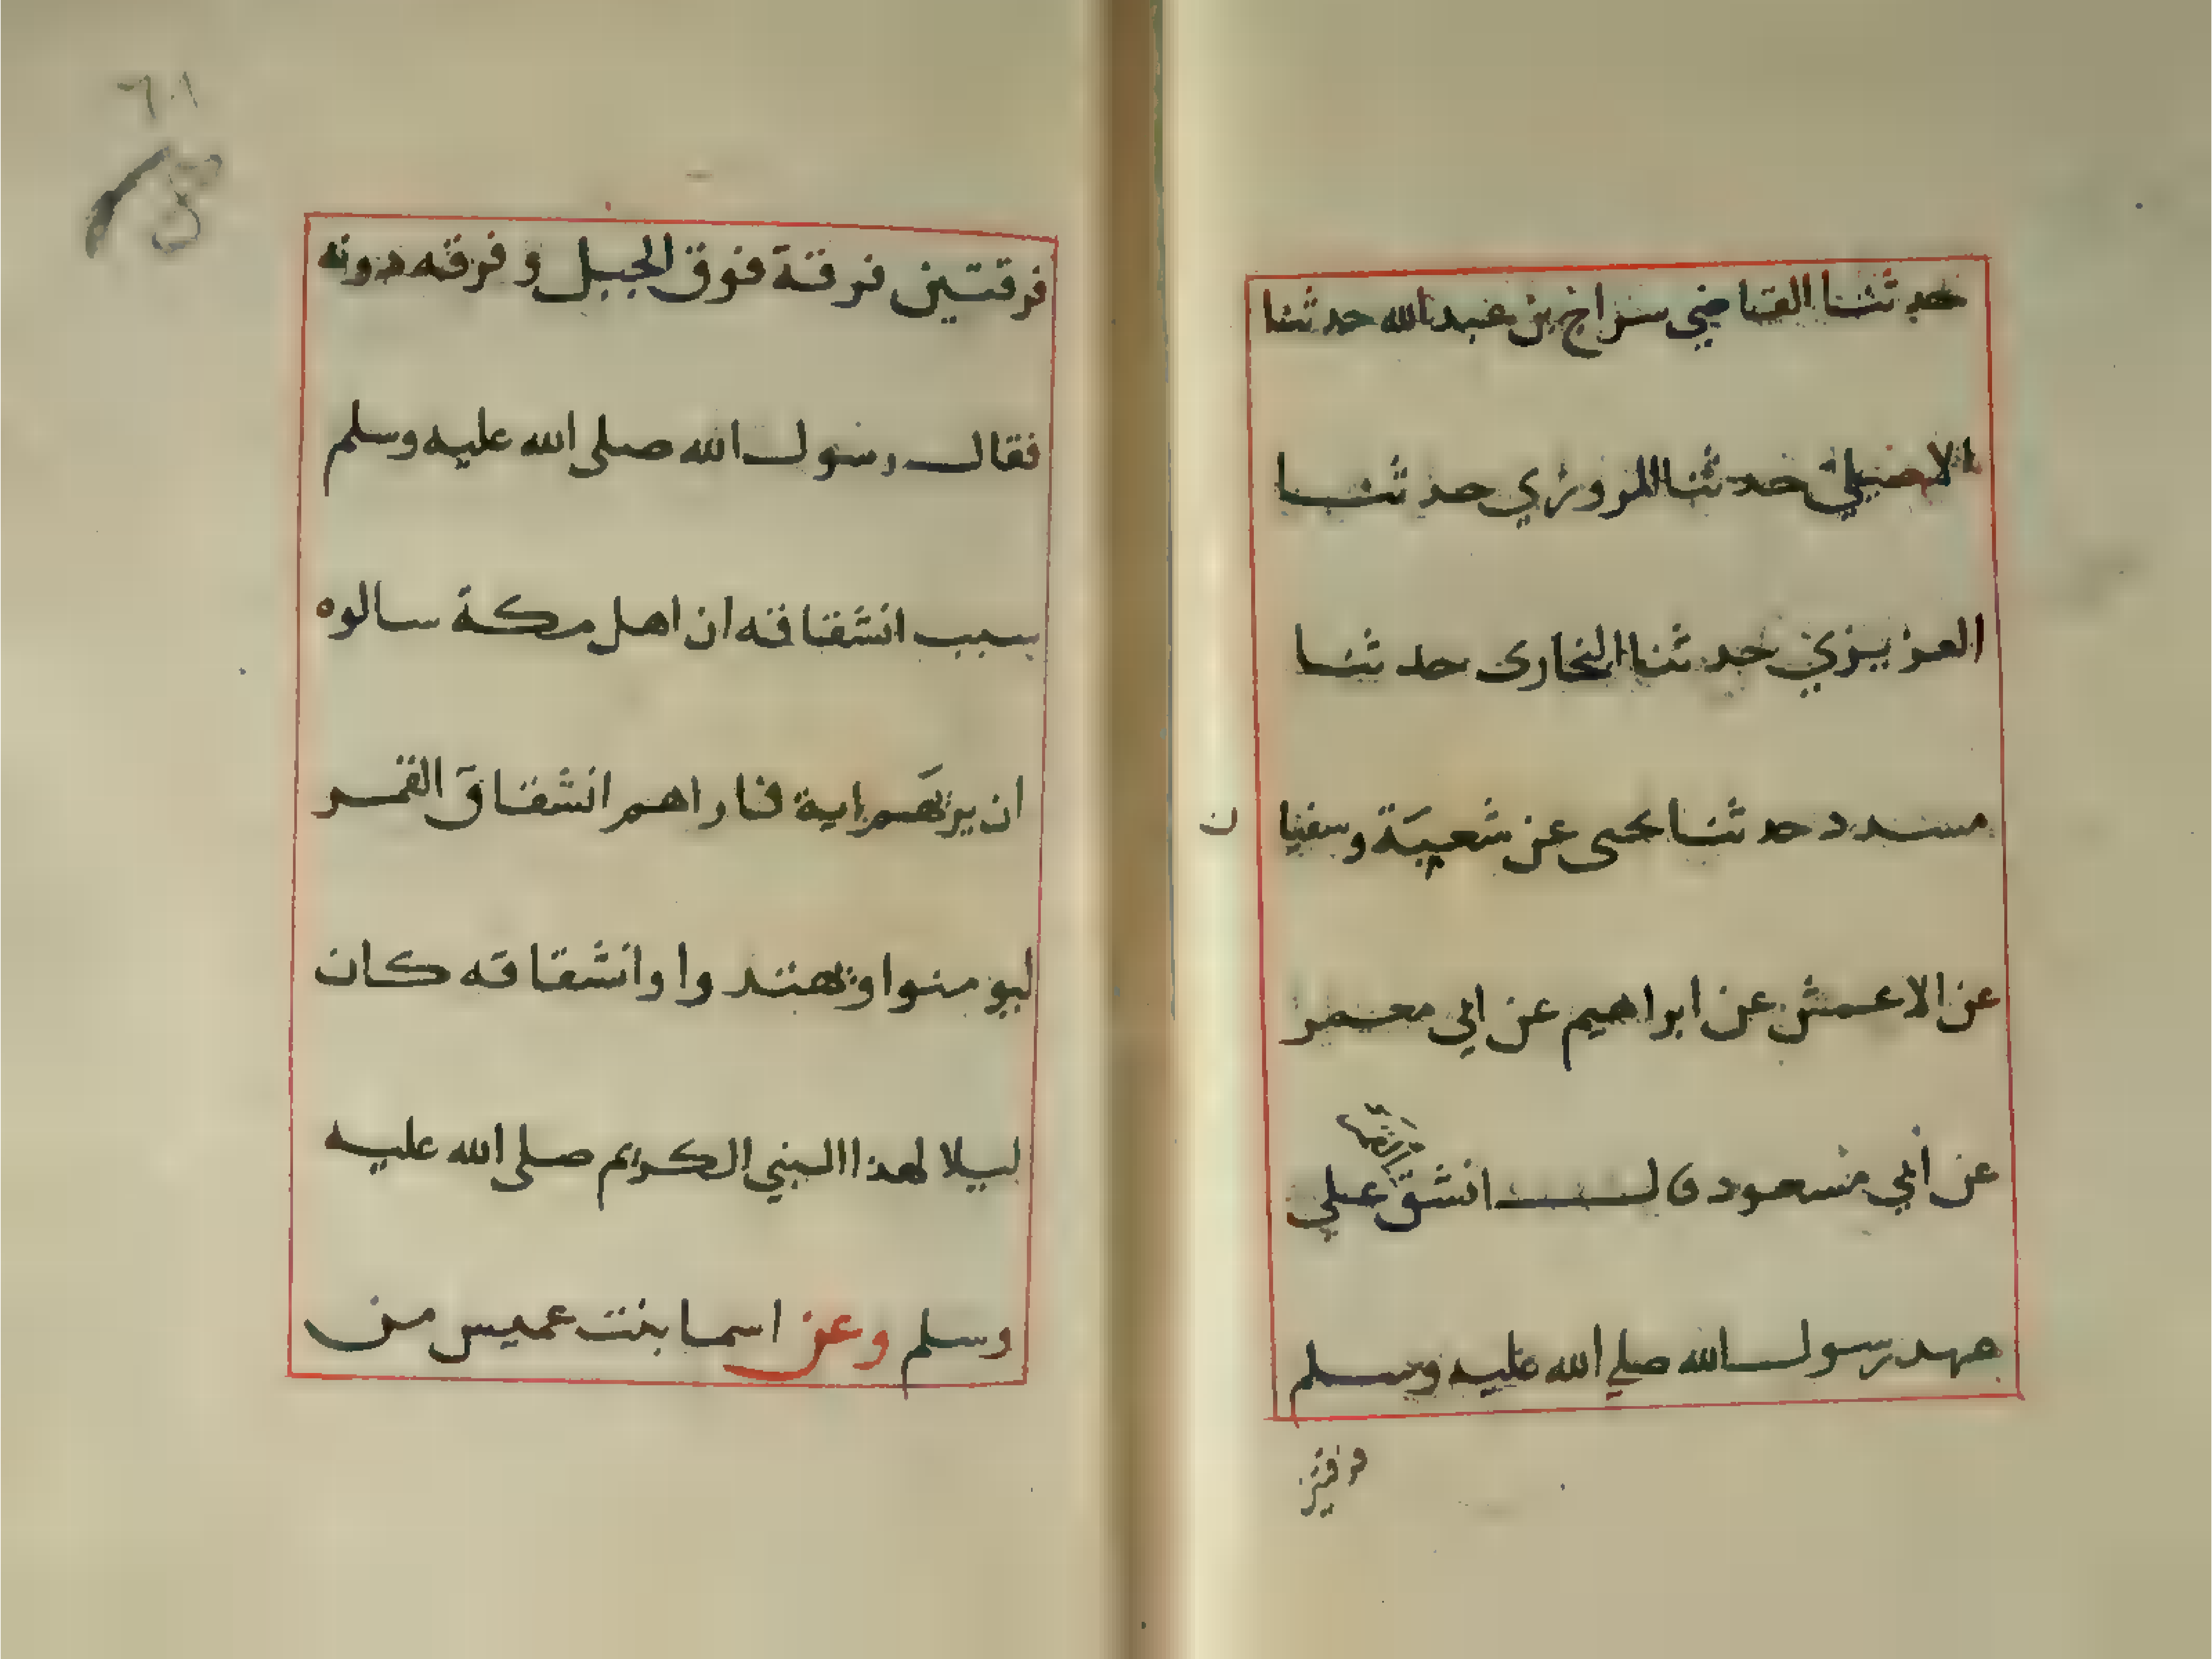 حدثنا القاضي سراج بن عبد الله حدثنا
الاصيلي حدثنا المروزي حدثنا
العزيزي حدثنا البخارى حدثنا
مسدد حدثنا يحيى عن شعبة وسفيان
عن الاعمش عن ابراهيم عن ابي معمر
القمر
عن ابي مسعود قال انشق علي
عهد رسول الله صلي الله عليه وسلم
فرقتين فرقة فوق الجبل وفرقه دونه
فقال رسول الله صلى الله عليه وسلم
سبب انشقاقه ان اهل مكة سالوه
ان يريهم اية فاراهم انشقاق القمر
ليومنوا ويهتدوا وانشقاقه كان
ليلا لهذا النبي الكريم صلى الله عليه
وسلم وعن اسما بنت عميس من